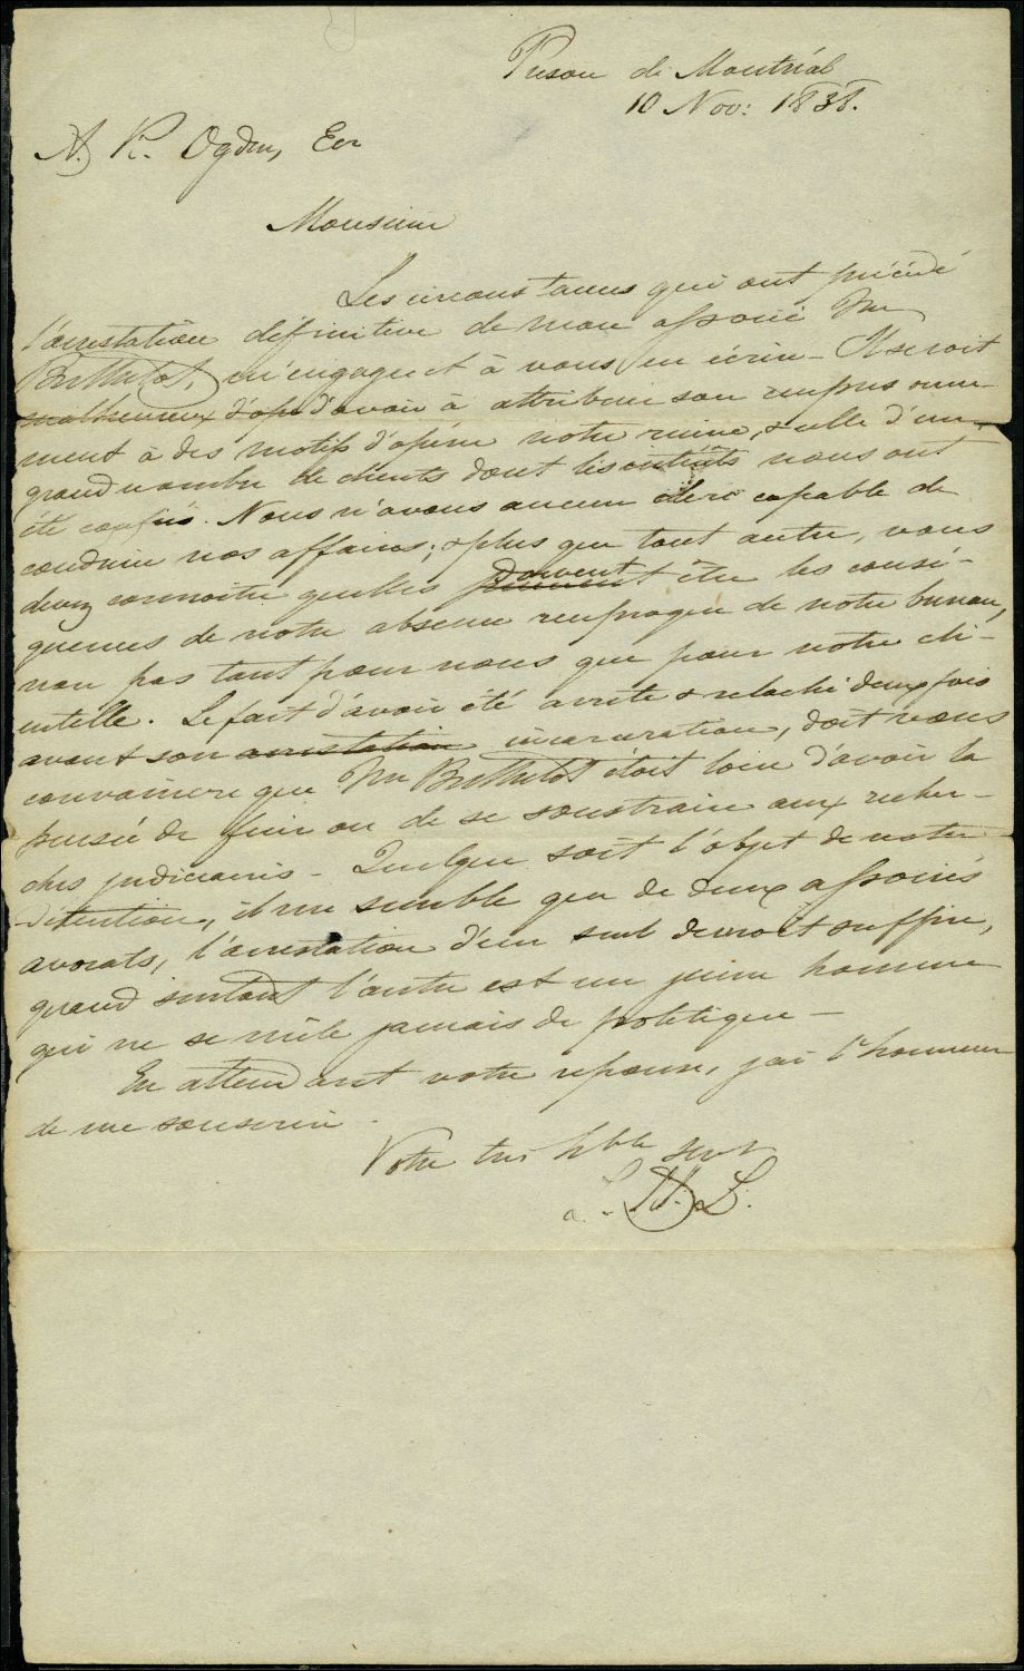 Prison de Montréal
10 Nov: 1838.
Ogden, Ecr
Monsieur
Les circonstances qui ont précédé
l'arrestation définitive de mon associé Mr
Berthelot, m'engagent à vous en écrire - Il seroit
malheureux d'op d'avoir à attribuer son emprisonne-
ment à des motifs d'opérer notre ruine, & celle d'un
grand nombre de clients dont les intérêts nous ont
été confiés. Nous n'avons aucun clerc capable de
conduire nos affaires; & plus que tout autre, vous
devez connoitre quelles doivent être les consé-
quences de notre absence de notre bureau,
non pas tant pour nous que pour notre cli-
entelle. Le fait d'avoir été arrêté & relaché deux fois
avant son arrestation incarceration, doit vous
convaincre que Mr Berthelot étoit loin d'avoir la
pensée de fuir ou de se soustraire aux recher-
ches judiciaires - Quelque soit l'objet de notre
détention, il me semble que de deux associés
avocats, l'arrestation d'un seul devroit suffire,
quand surtout l'autre est un jeune homme
qui ne se mêle jamais de politique -
En attendant votre réponse, j'ai l'honneur
de me souscrire
Votre très hble servt
L. H. L.